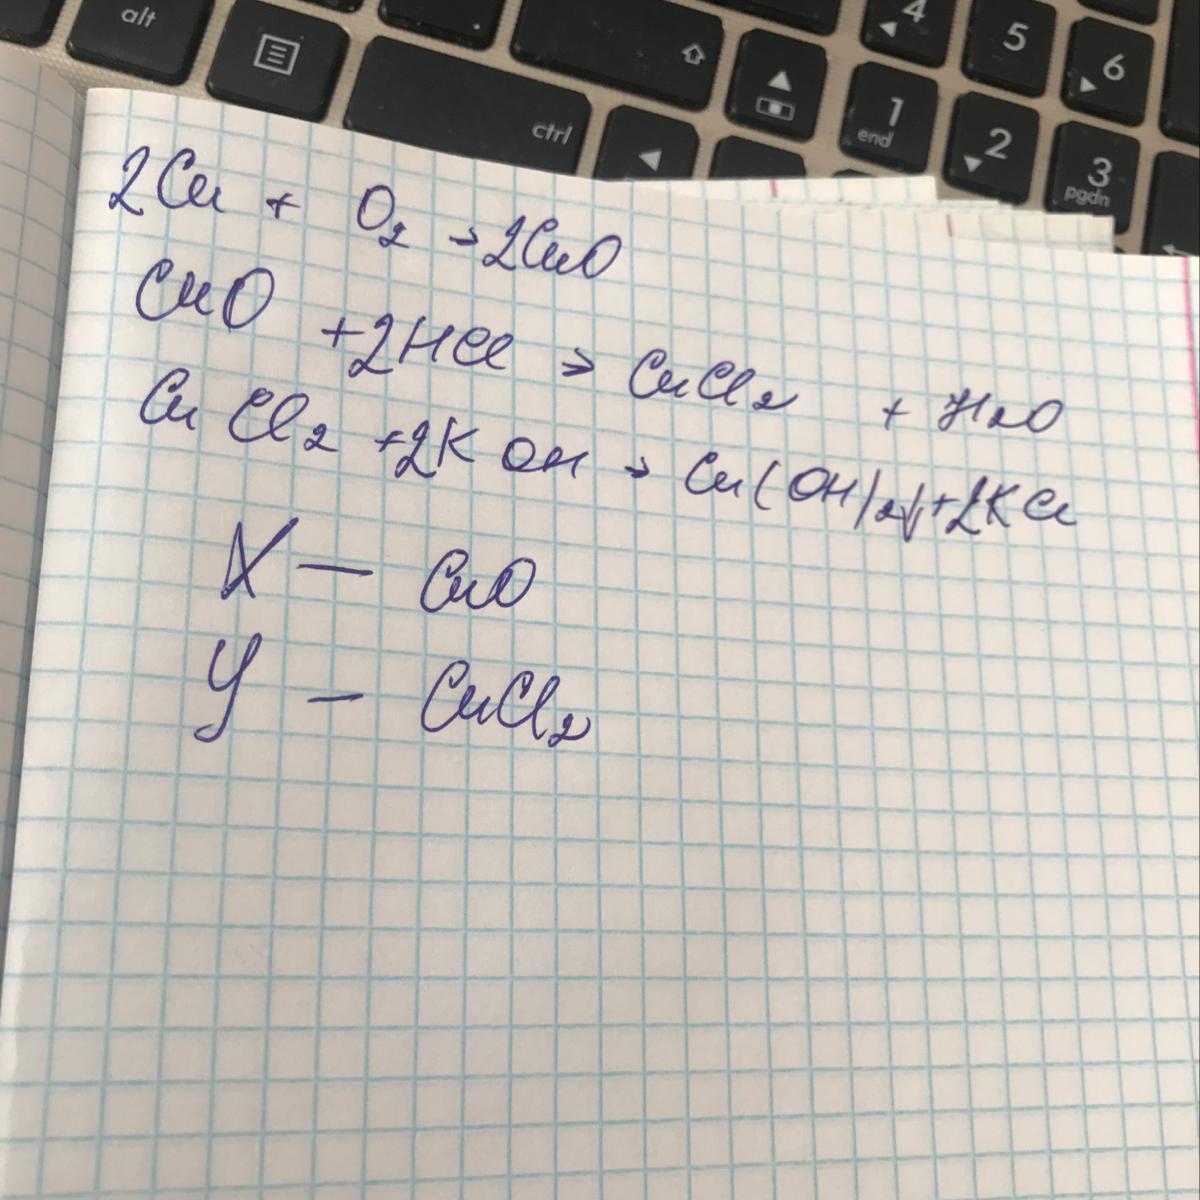 alt
ctrl
4
5
6
1
end
2
3
pgdn
2Cu + O2 → 2CuO
CuO + 2HCl → CuCl2 + H2O
CuCl2 + 2KOH → Cu(OH)2↓ + 2KCl
X — CuO
Y — CuCl2